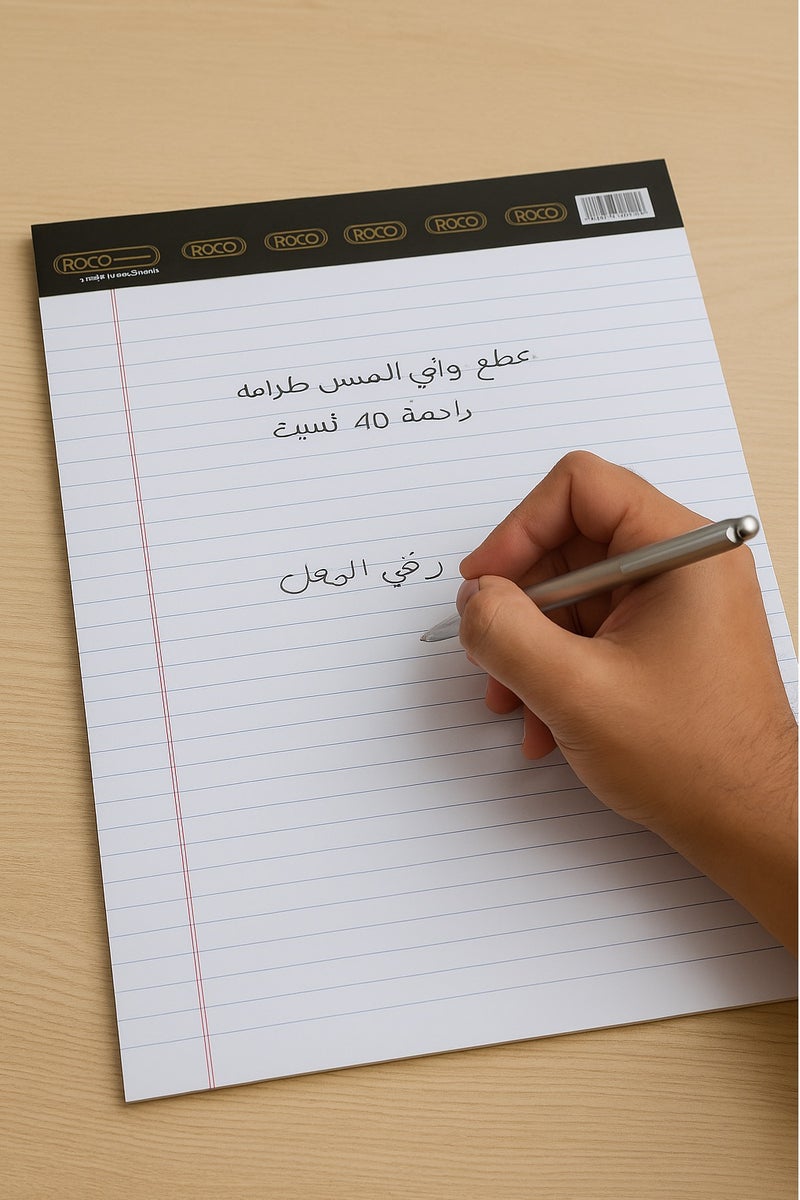 ROCO ROCO ROCO ROCO ROCO ROCO
عطع وأني المس طرامه
راحمة 40 نسيت
رخي الحعل